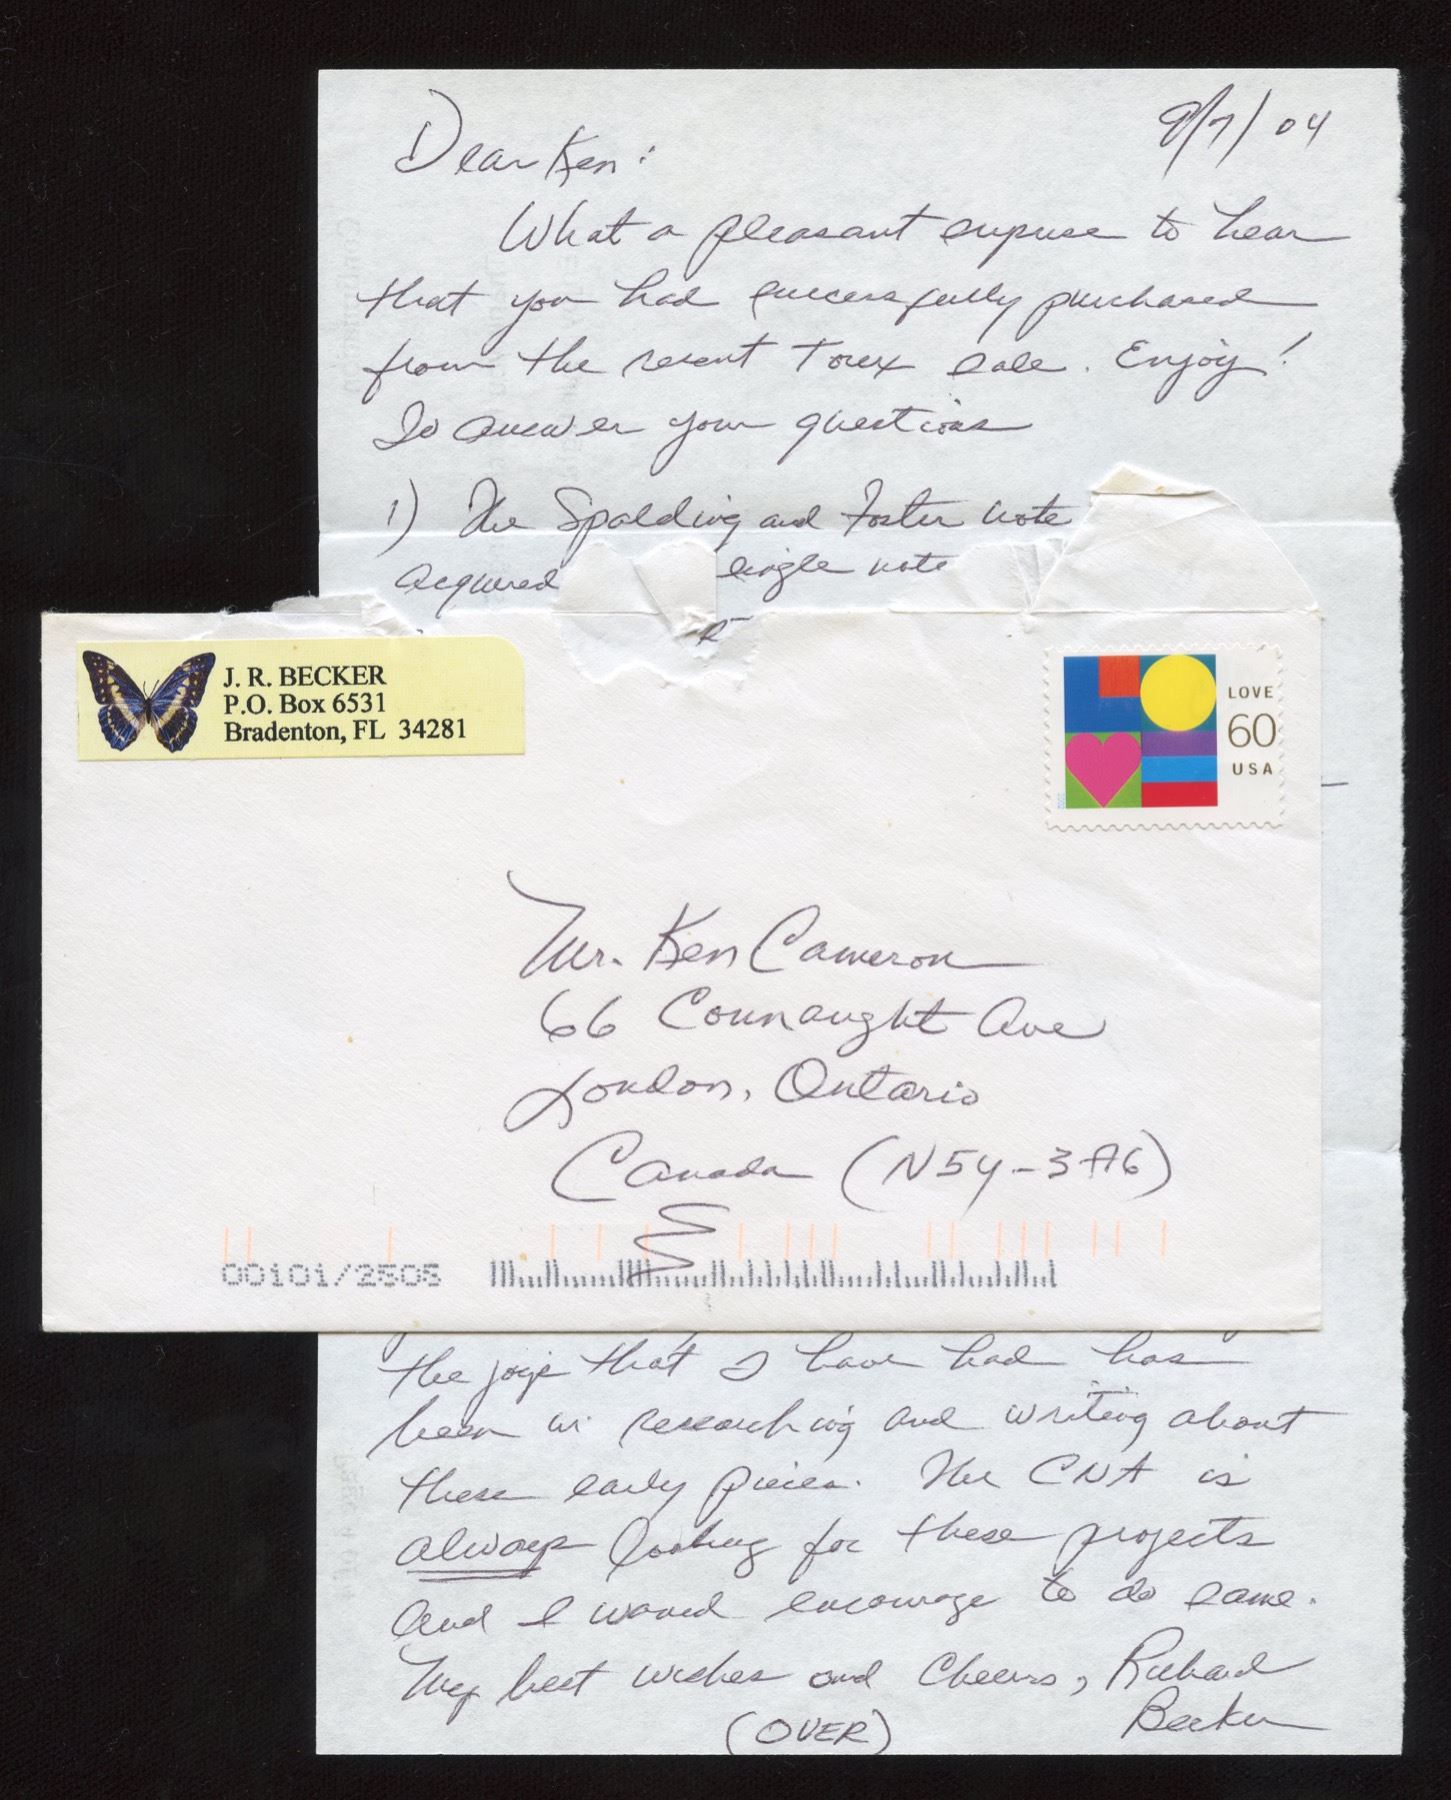 8/7/04
Dear Ken:
What a pleasant surprise to hear
that you had successfully purchased
from the recent Torex sale. Enjoy!
To answer your questions
1) The Spalding and Foster note
acquired single note
J. R. BECKER
P.O. Box 6531
Bradenton, FL 34281
LOVE
60
USA
Mr. Ken Cameron
66 Connaught Ave
London, Ontario
Canada (N5Y-3A6)
00101/2505
the joys that I have had has
been in researching and writing about
these early pieces. The CNA is
always looking for these projects
and I would encourage to do same.
My best wishes and Cheers, Richard
Becker
(OVER)